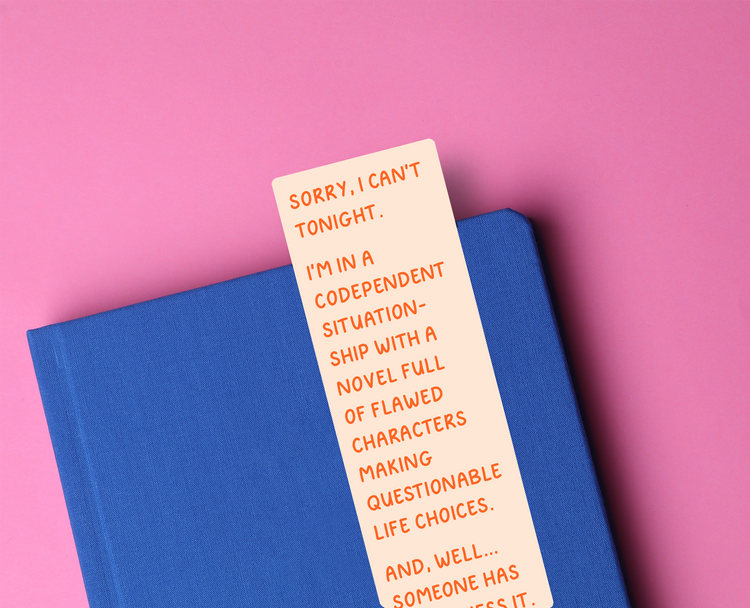 SORRY, I CAN'T
TONIGHT.
I'M IN A
CODEPENDENT
SITUATION-
SHIP WITH A
NOVEL FULL
OF FLAWED
CHARACTERS
MAKING
QUESTIONABLE
LIFE CHOICES.
AND, WELL...
SOMEONE HAS
IT.